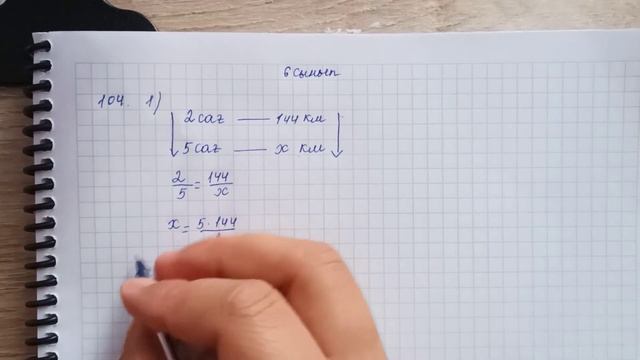 6 сынып
104. 1)
2 сағ — 144 км
5 сағ — x км
2/5 = 144/x
x = 5·144